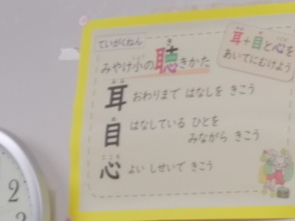 ていがくねん
みやけ小の聴きかた
耳+目と心を
あいてにむけよう
耳 おわりまで はなしを きこう
目 はなしている ひとを
みながら きこう
心 よい しせいで きこう
2
2